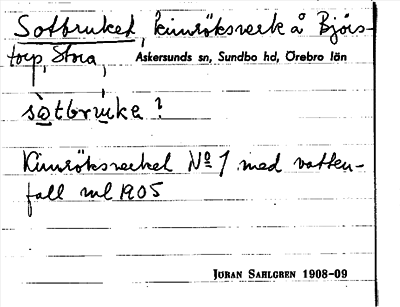 Sotbruket, kimröksverk å Björs-
torp, Stora, Askersunds sn, Sundbo hd, Örebro län
sòtbruke?
Kimröksverket No 1 med vatten-
fall ml 1905
Jöran Sahlgren 1908-09